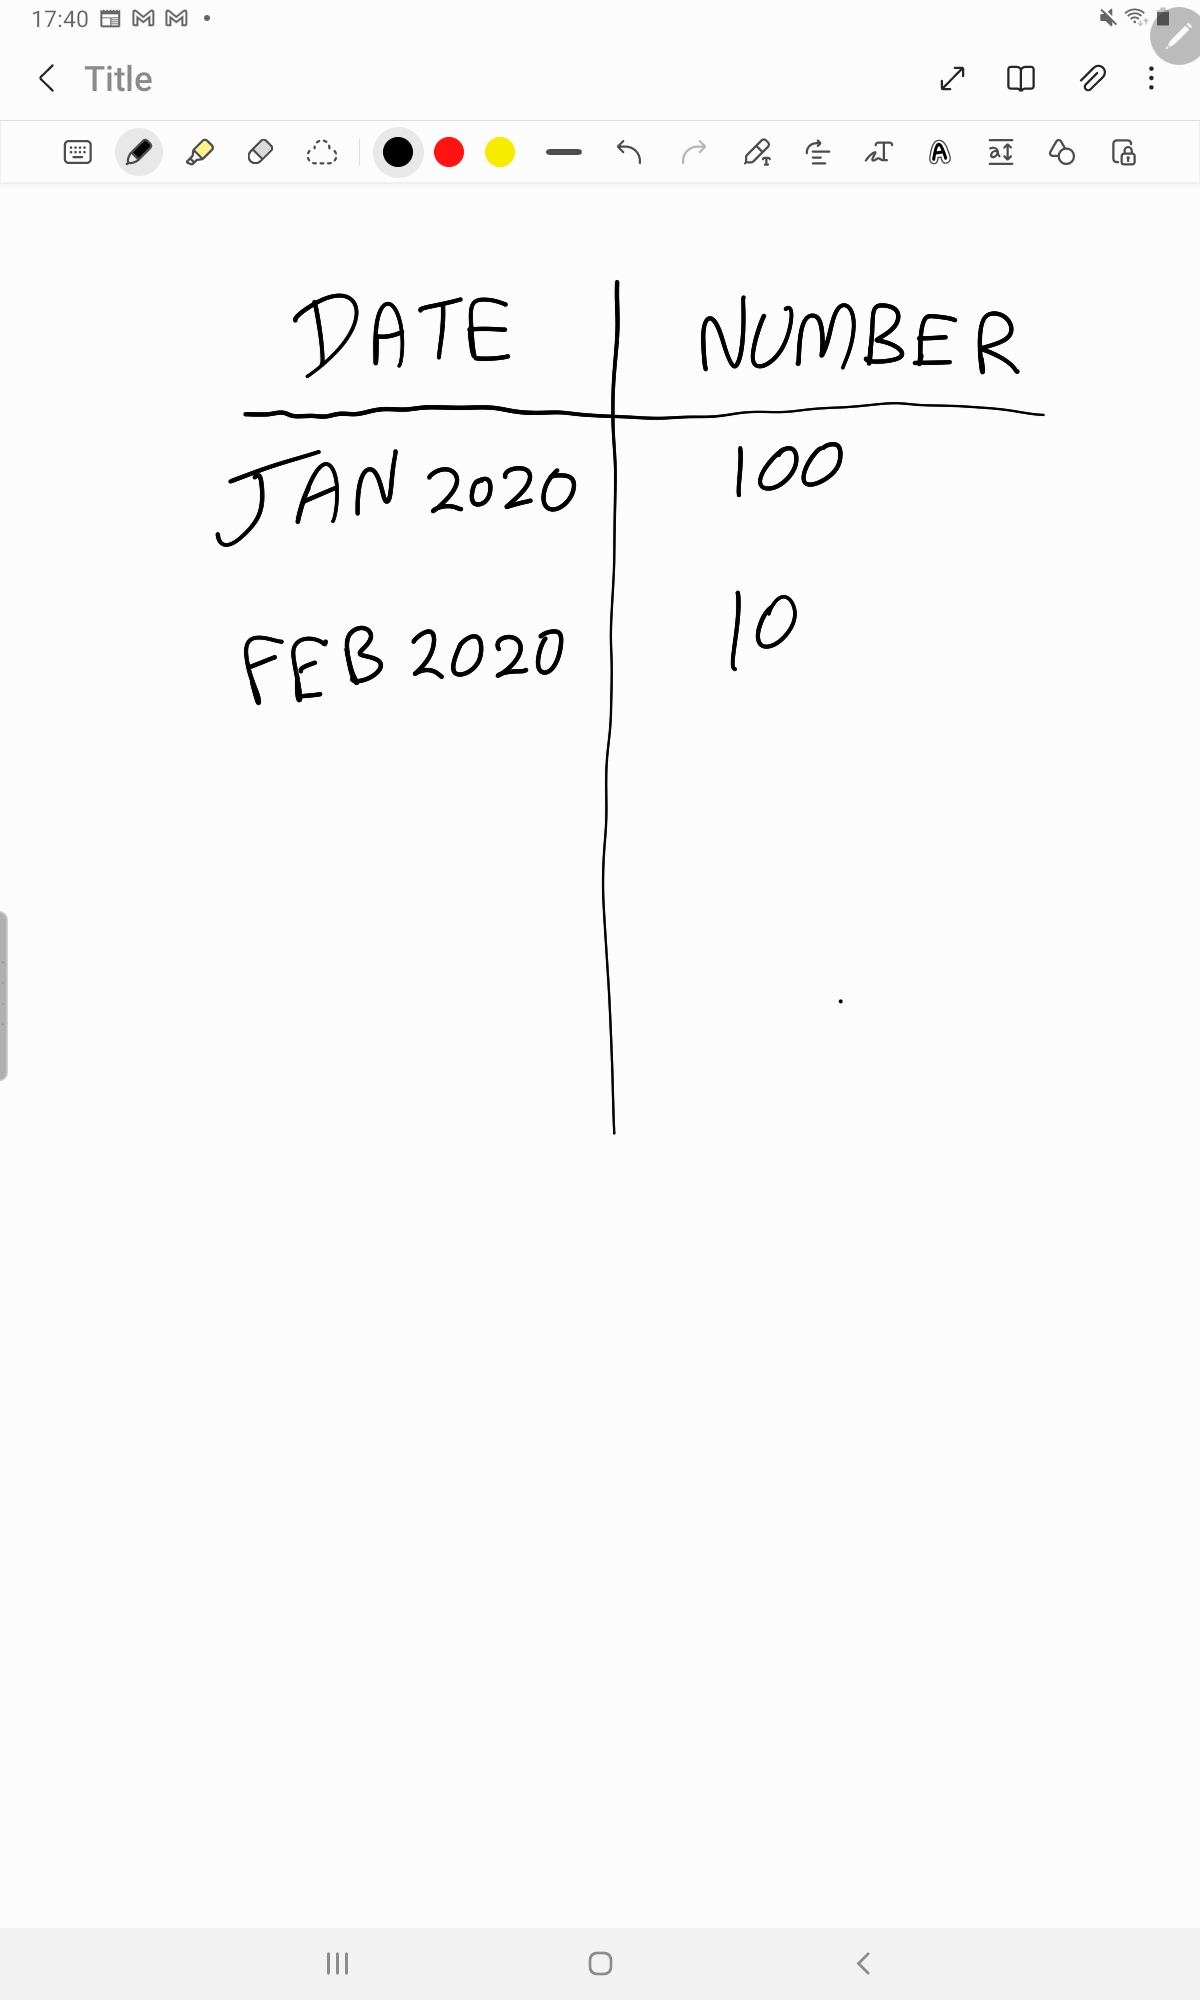 17:40
Title
DATE NUMBER
JAN 2020 100
FEB 2020 10